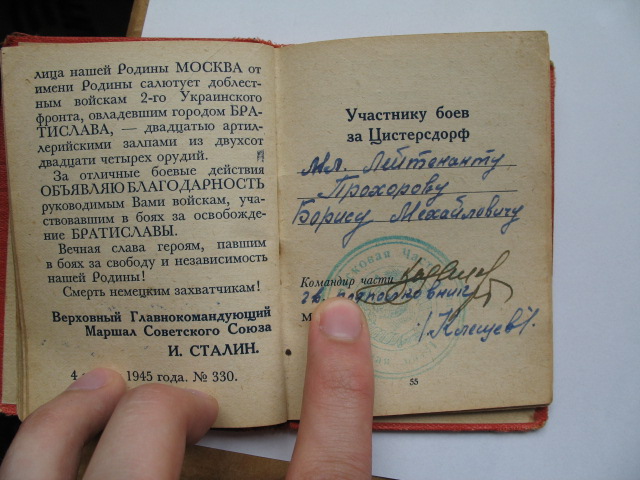 лица нашей Родины МОСКВА от
имени Родины салютует доблест-
ным войскам 2-го Украинского
фронта, овладевшим городом БРА-
ТИСЛАВА, — двадцатью артил-
лерийскими залпами из двухсот
двадцати четырех орудий.
За отличные боевые действия
ОБЪЯВЛЯЮ БЛАГОДАРНОСТЬ
руководимым Вами войскам, уча-
ствовавшим в боях за освобожде-
ние БРАТИСЛАВЫ.
Вечная слава героям, павшим
в боях за свободу и независимость
нашей Родины!
Смерть немецким захватчикам!
Верховный Главнокомандующий
Маршал Советского Союза
И. СТАЛИН.
4 1945 года. № 330.
Участнику боев
за Цистерсдорф
Мл. Лейтенанту
Прохорову
Борису Михайловичу
Командир части
гв. подполковник
М
/Клещев/.
55